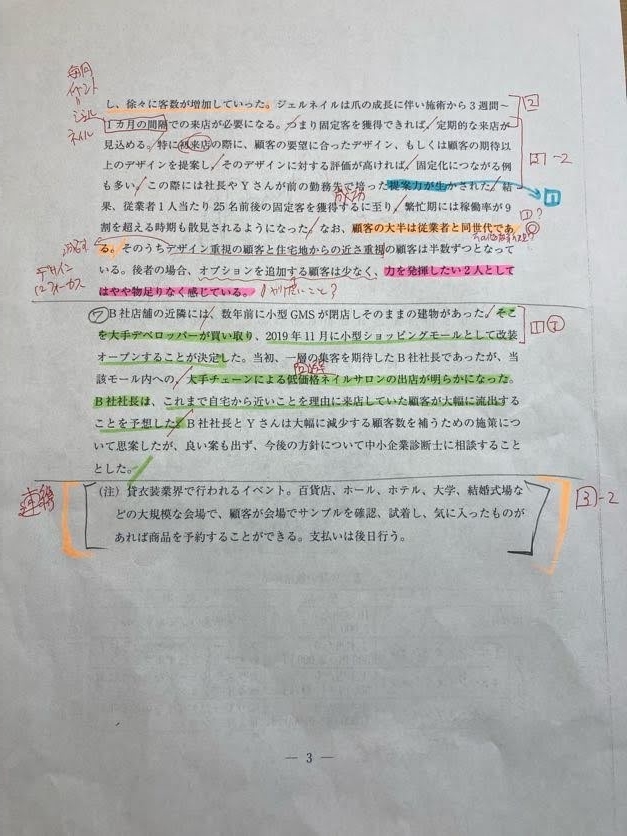 毎月
イベント
=
ジェル
ネイル
し、徐々に客数が増加していった。ジェルネイルは爪の成長に伴い施術から3週間〜
1カ月の間隔での来店が必要になる。つまり固定客を獲得できれば、定期的な来店が
見込める。特に初来店の際に、顧客の要望に合ったデザイン、もしくは顧客の期待以
上のデザインを提案し、そのデザインに対する評価が高ければ、固定化につながる例
も多い。この際には社長やYさんが前の勤務先で培った提案力が生かされた。結
果、従業者1人当たり25名前後の固定客を獲得するに至り、繁忙期には稼働率が9
割を超える時期も散見されるようになった。なお、顧客の大半は従業者と同世代であ
る。そのうちデザイン重視の顧客と住宅地からの近さ重視の顧客は半数ずつとなって
いる。後者の場合、オプションを追加する顧客は少なく、力を発揮したい2人として
はやや物足りなく感じている。
2
3-2
1?
デザイン
にフォーカス
やりたいこと?
⑦B社店舗の近隣には、数年前に小型GMSが閉店しそのままの建物があった。そこ
を大手デベロッパーが買い取り、2019年11月に小型ショッピングモールとして改装
オープンすることが決定した。当初、一層の集客を期待したB社社長であったが、当
該モール内への、大手チェーンによる低価格ネイルサロンの出店が明らかになった。
B社社長は、これまで自宅から近いことを理由に来店していた顧客が大幅に流出する
ことを予想した。B社社長とYさんは大幅に減少する顧客数を補うための施策につ
いて思案したが、良い案も出ず、今後の方針について中小企業診断士に相談すること
とした。
1
(注) 貸衣装業界で行われるイベント。百貨店、ホール、ホテル、大学、結婚式場な
どの大規模な会場で、顧客が会場でサンプルを確認、試着し、気に入ったものが
あれば商品を予約することができる。支払いは後日行う。
連携
3-2
— 3 —